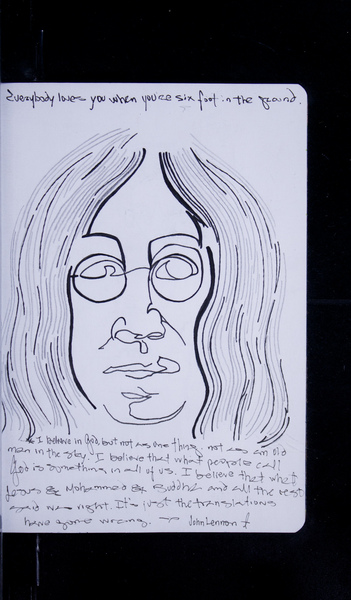 Everybody loves you when you're six foot in the ground.
I believe in God, but not as one thing, not as an old
man in the sky. I believe that what people call
God is something in all of us. I believe that what
Jesus & Mohammed & Buddha and all the rest
said was right. It's just the translations
have gone wrong. John Lennon